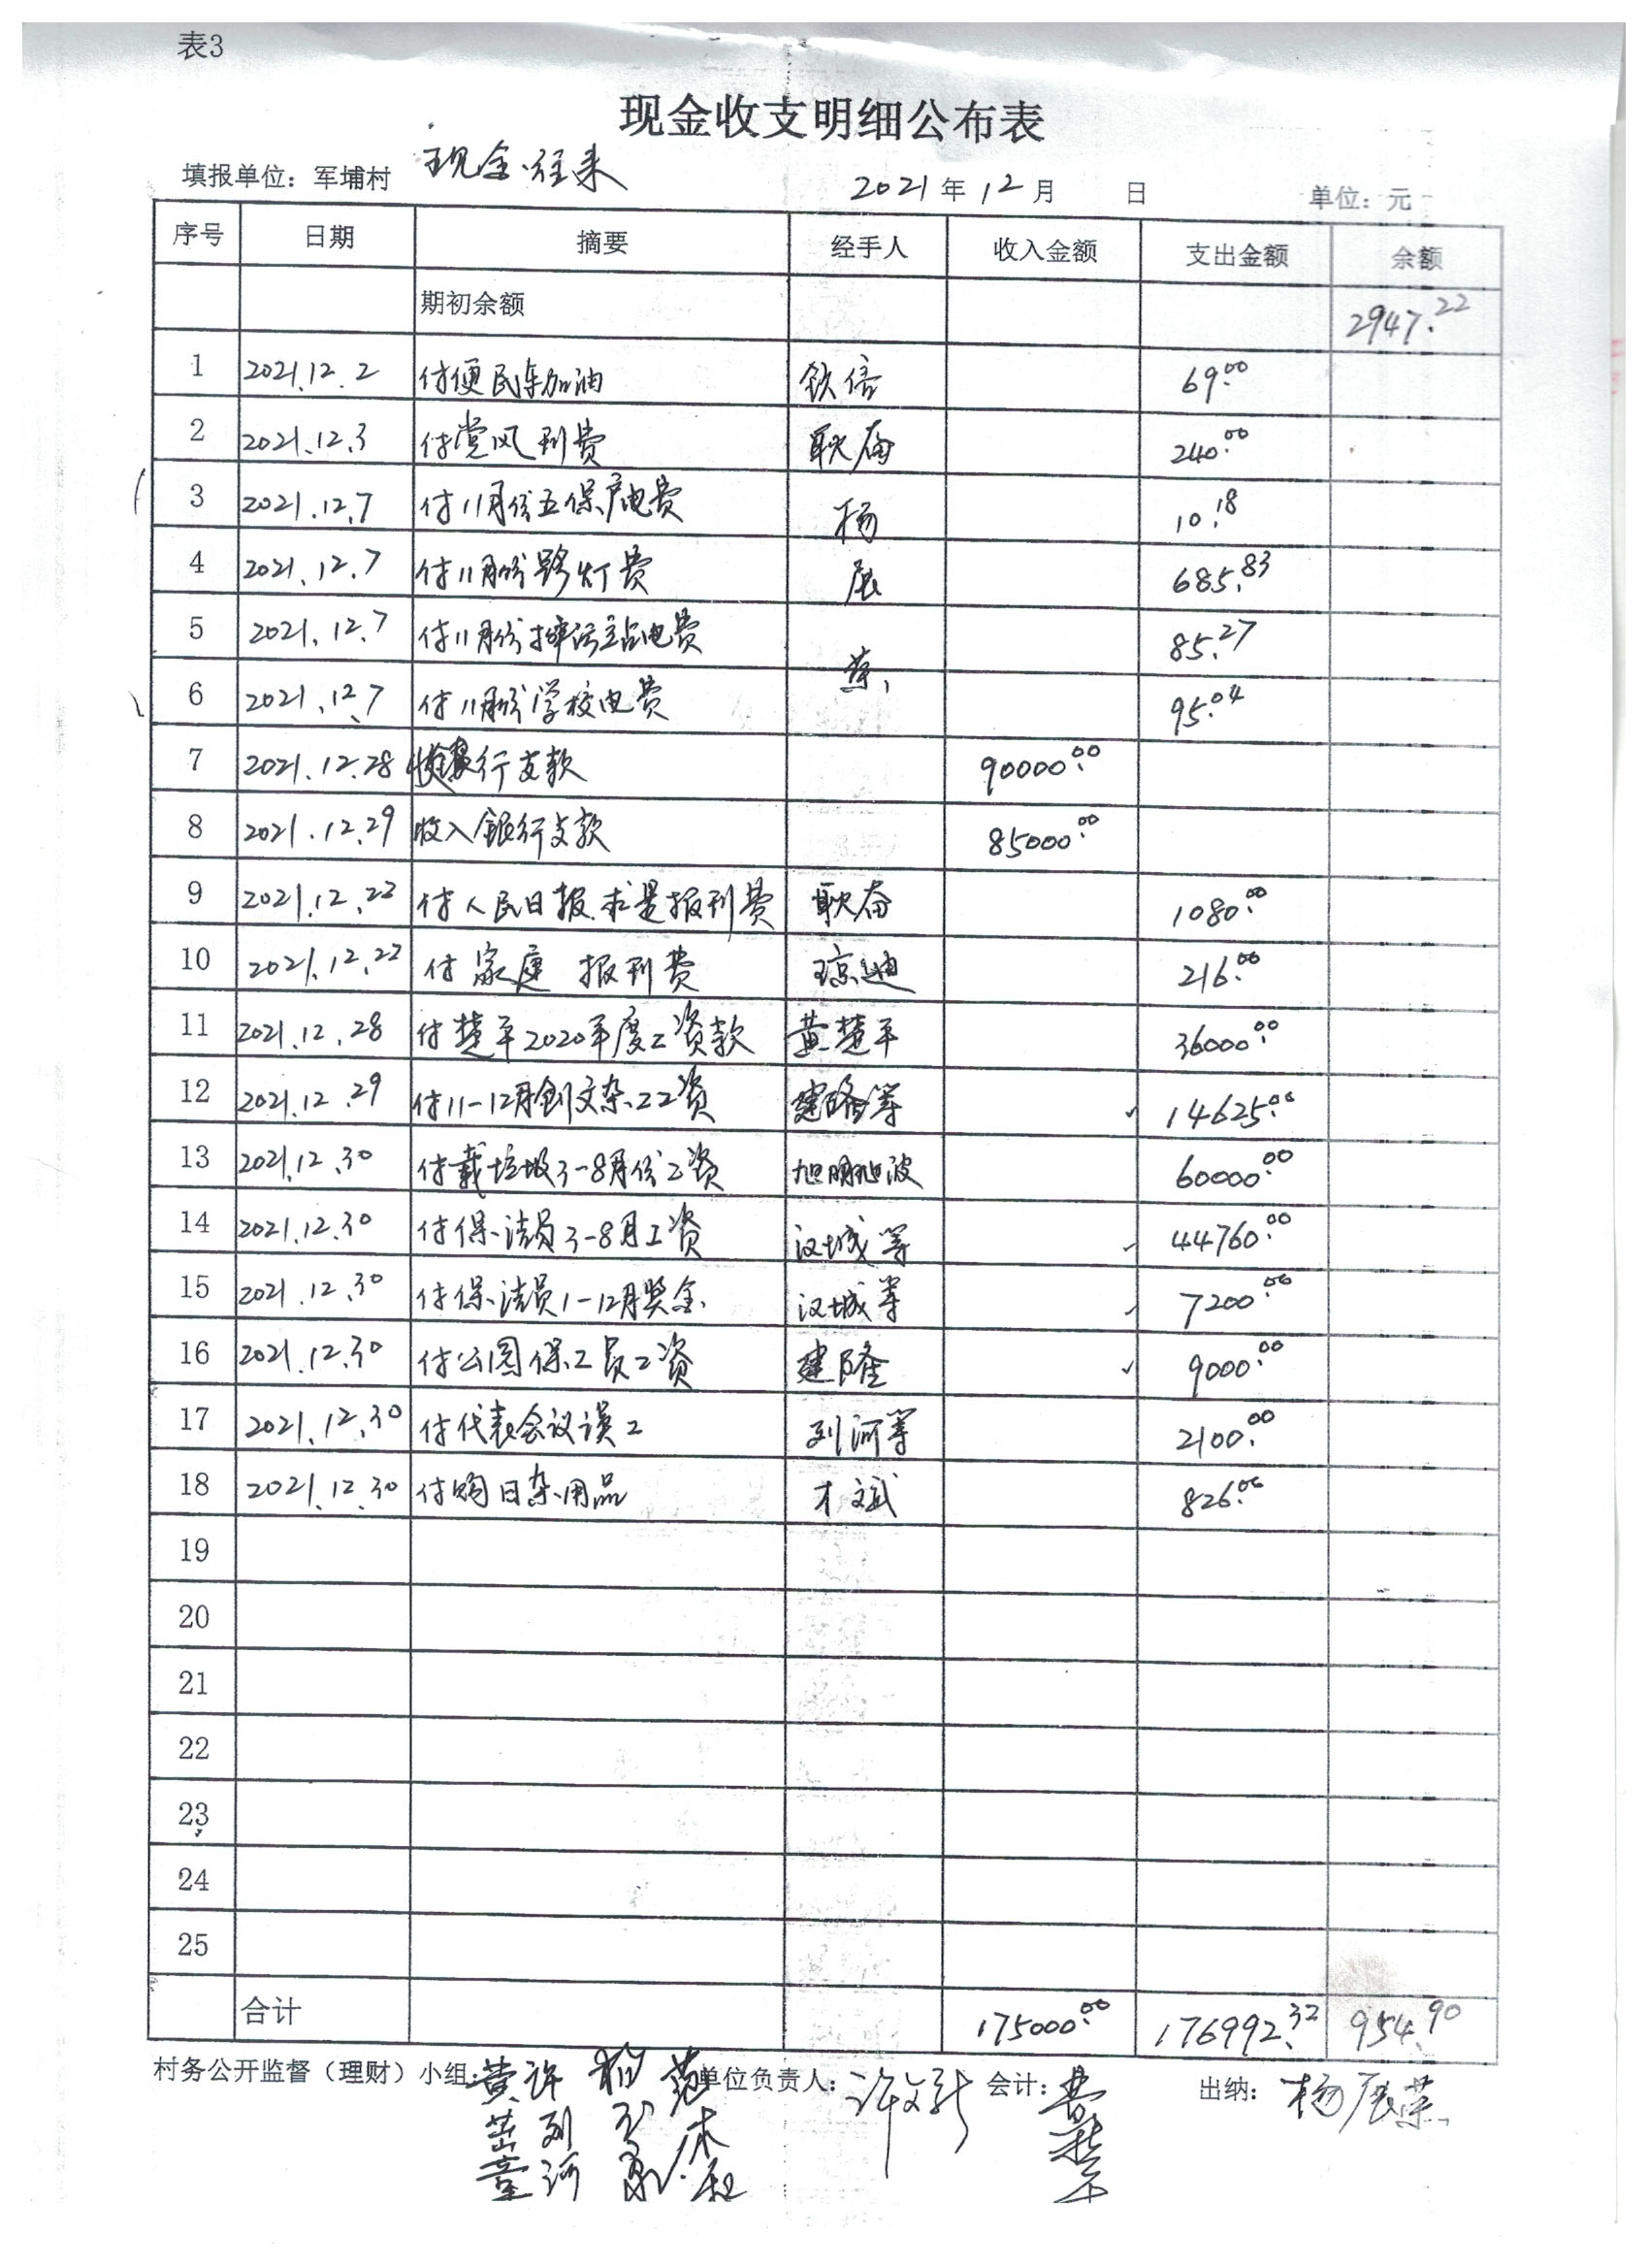 表3
现金收支明细公布表
填报单位：军埔村 现金往来 2021年12月 日 单位：元
序号 日期 摘要 经手人 收入金额 支出金额 余额
期初余额 2947.22
1 2021.12.2 付便民车加油 69.00
2 2021.12.3 付党风刊费 240.00
3 2021.12.7 付11月份五保户电费 杨 10.18
4 2021.12.7 付11月份路灯费 展 685.83
5 2021.12.7 付11月份排污站电费 85.27
荣
6 2021.12.7 付11月份学校电费 95.04
7 2021.12.28 行支款 90000.00
8 2021.12.29 收入银行支款 85000.00
9 2021.12.22 付人民日报.求是报刊费 1080.00
10 2021.12.22 付家庭 报刊费 琼迪 216.00
11 2021.12.28 付楚平2020年度工资款 黄楚平 36000.00
12 2021.12.29 付11-12月创文杂工工资 建隆等 14625.00
13 2021.12.30 付载垃圾3-8月份工资 旭明旭波 60000.00
14 2021.12.30 付保洁员3-8月工资 汉城等 44760.00
15 2021.12.30 付保洁员1-12月奖金 汉城等 7200.00
16 2021.12.30 付公园保工员工资 建隆 9000.00
17 2021.12.30 付代表会议误工 列河等 2100.00
18 2021.12.30 付购日杂用品 才斌 826.00
19
20
21
22
23
24
25
合计 175000.00 176992.32 954.90
村务公开监督（理财）小组： 黄 许 范 单位负责人： 许 会计： 出纳： 杨展荣
列
河